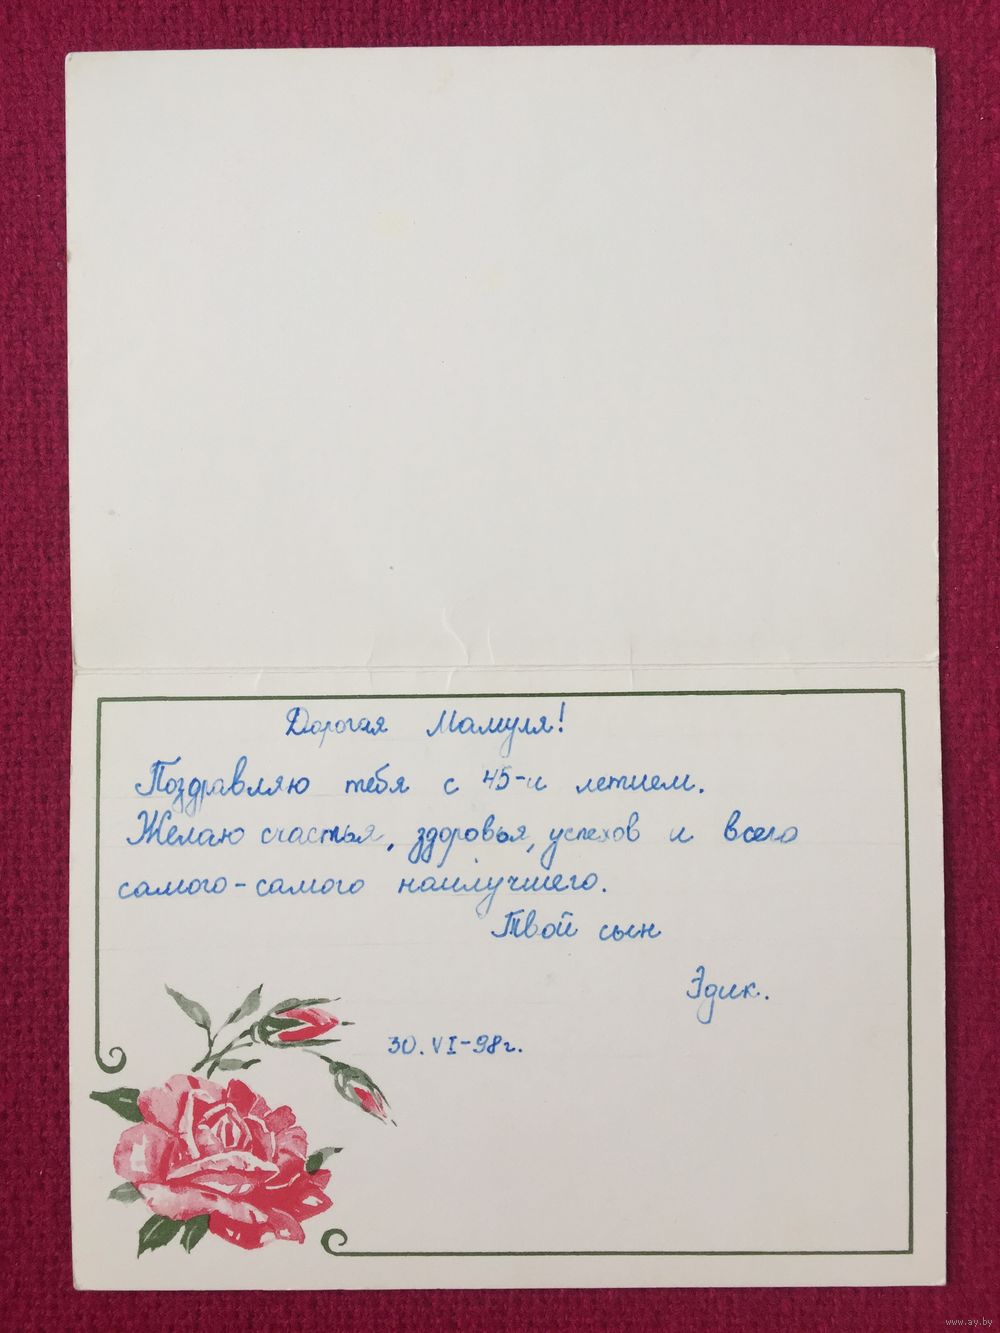 Дорогая Мамуля!
Поздравляю тебя с 45-и летием.
Желаю счастья, здоровья, успехов и всего
самого-самого наилучшего.
Твой сын
Эдик.
30.VI-98г.
www.ay.by